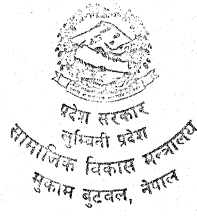 प्रदेश सरकार
लुम्बिनी प्रदेश
सामाजिक विकास मन्त्रालय
मुकाम बुटवल, नेपाल